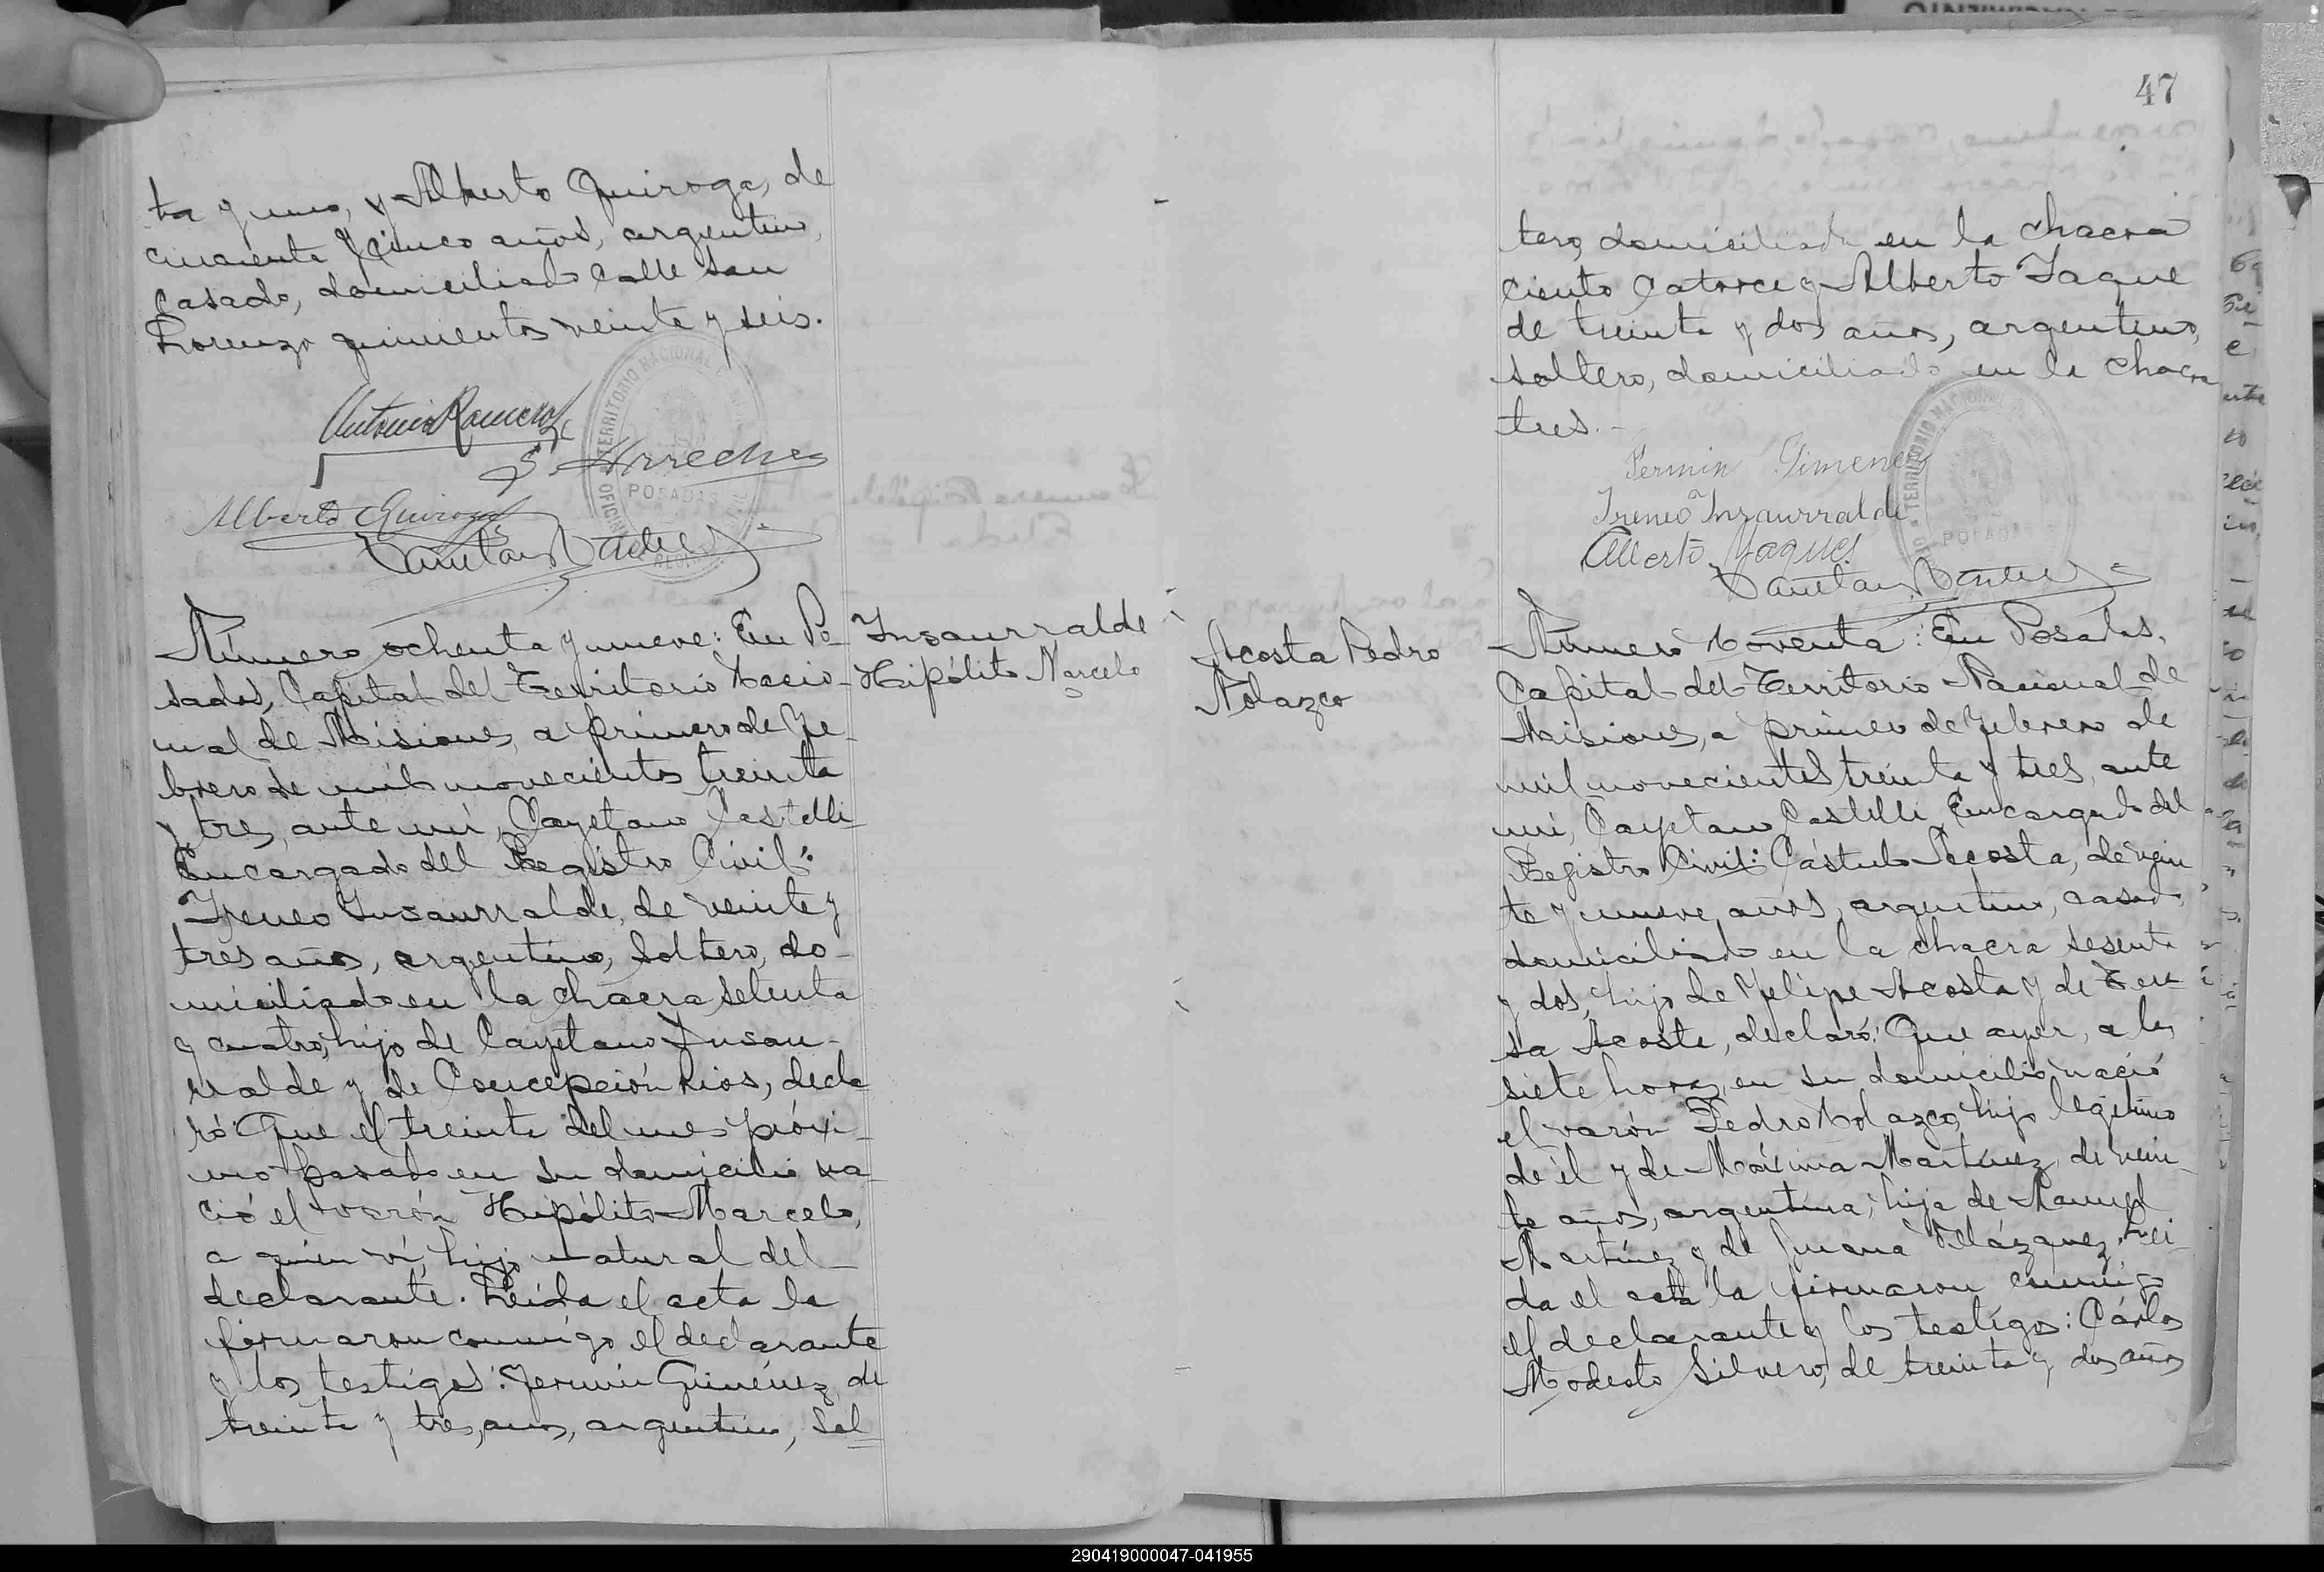 ta y uno, y Alberto Quiroga, de
cincuenta y cinco años, argentino,
casado, domiciliado calle San
Lorenzo quinientos veinte y seis.
Antonio Romero
S. Arreche
POSADAS
Alberto Quiroga
Número ochenta y nueve: En Po-
sadas, Capital del Territorio Nacio-
nal de Misiones, a primero de Fe-
brero de mil novecientos treinta
y tres, ante mí, Cayetano Castelli
Encargado del Registro Civil:
Ireneo Insaurralde, de veinte y
tres años, argentino, soltero, do-
miciliado en la chacra setenta
y cuatro, hijo de Cayetano Insau-
rralde y de Concepción Rios, decla
ró: Que el treinta del mes próxi-
mo pasado en su domicilio na-
ció el varón Hipólito Marcelo,
a quien ví, hijo natural del
declarante. Leída el acta la
firmaron conmigo el declarante
y los testigos: Fermín Giménez, de
treinta y tres años, argentino, sol-
Insaurralde
Hipólito Marcelo
47
tero, domiciliado en la chacra
ciento catorce y Alberto Yaque
de treinta y dos años, argentino,
soltero, domiciliado en la chacra
tres.-
Fermin Gimenez
Ireneo Inzaurralde
Alberto Yaques
POSADAS
Acosta Pedro
Nolazco
Número Noventa: En Posadas,
Capital del Territorio Nacional de
Misiones, a primero de Febrero de
mil novecientos treinta y tres, ante
mí, Cayetano Castelli, Encargado del
Registro Civil: Cástulo Acosta, de vein
te y nueve años, argentino, casado,
domiciliado en la chacra sesenta
y dos, hijo de Felipe Acosta y de Tere
sa Acosta, declaró: Que ayer, a las
siete horas, en su domicilio nació
el varón Pedro Nolazco, hijo legítimo
de él y de Máxima Martínez, de vein-
te años, argentina, hija de Manuel
Martínez y de Juana Velázquez. Leí-
da el acta la firmaron conmigo
el declarante y los testigos: Cárlos
Modesto Silvero, de treinta y dos años
290419000047-041955